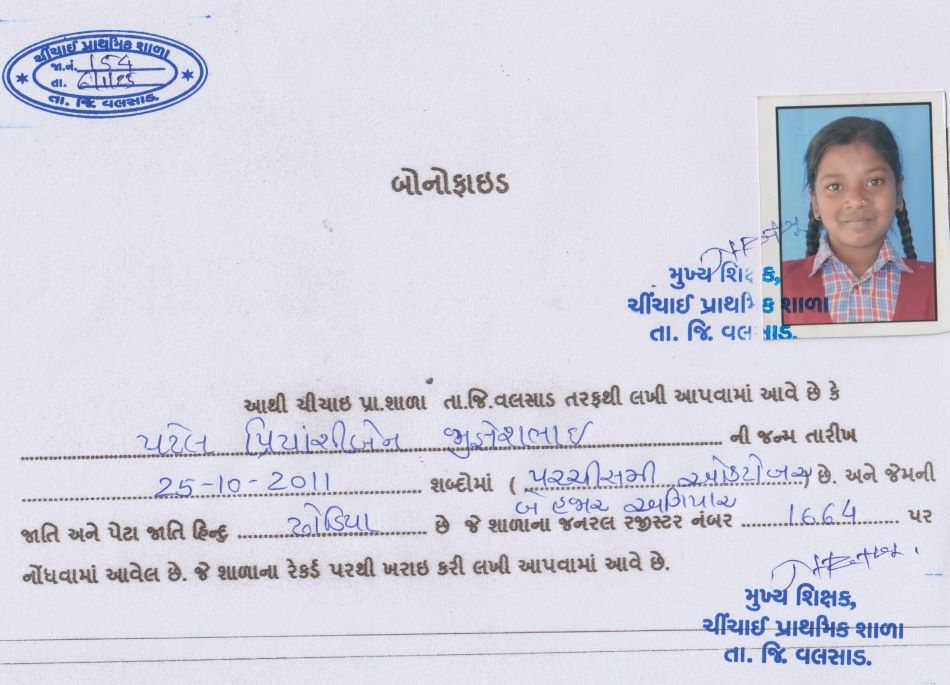 ચીંચાઈ પ્રાથમિક શાળા
જા.નં. 154
તા. 6/1/25
તા. જિ. વલસાડ.
બોનોફાઇડ
મુખ્ય શિક્ષક,
ચીંચાઈ પ્રાથમિક શાળા
તા. જિ. વલસાડ.
આથી ચીચાઇ પ્રા.શાળા તા.જિ.વલસાડ તરફથી લખી આપવામાં આવે છે કે
પટેલ પ્રિયાંસીબેન ની જન્મ તારીખ
25-10-2011 શબ્દોમાં ( પચ્ચીસમી ઓક્ટોબર ) છે. અને જેમની
બે હજાર અગિયાર
જાતિ અને પેટા જાતિ હિન્દુ ધોડિયા છે જે શાળાના જનરલ રજીસ્ટર નંબર 1664 પર
નોંધવામાં આવેલ છે. જે શાળાના રેકર્ડ પરથી ખરાઇ કરી લખી આપવામાં આવે છે.
મુખ્ય શિક્ષક,
ચીંચાઈ પ્રાથમિક શાળા
તા. જિ. વલસાડ.